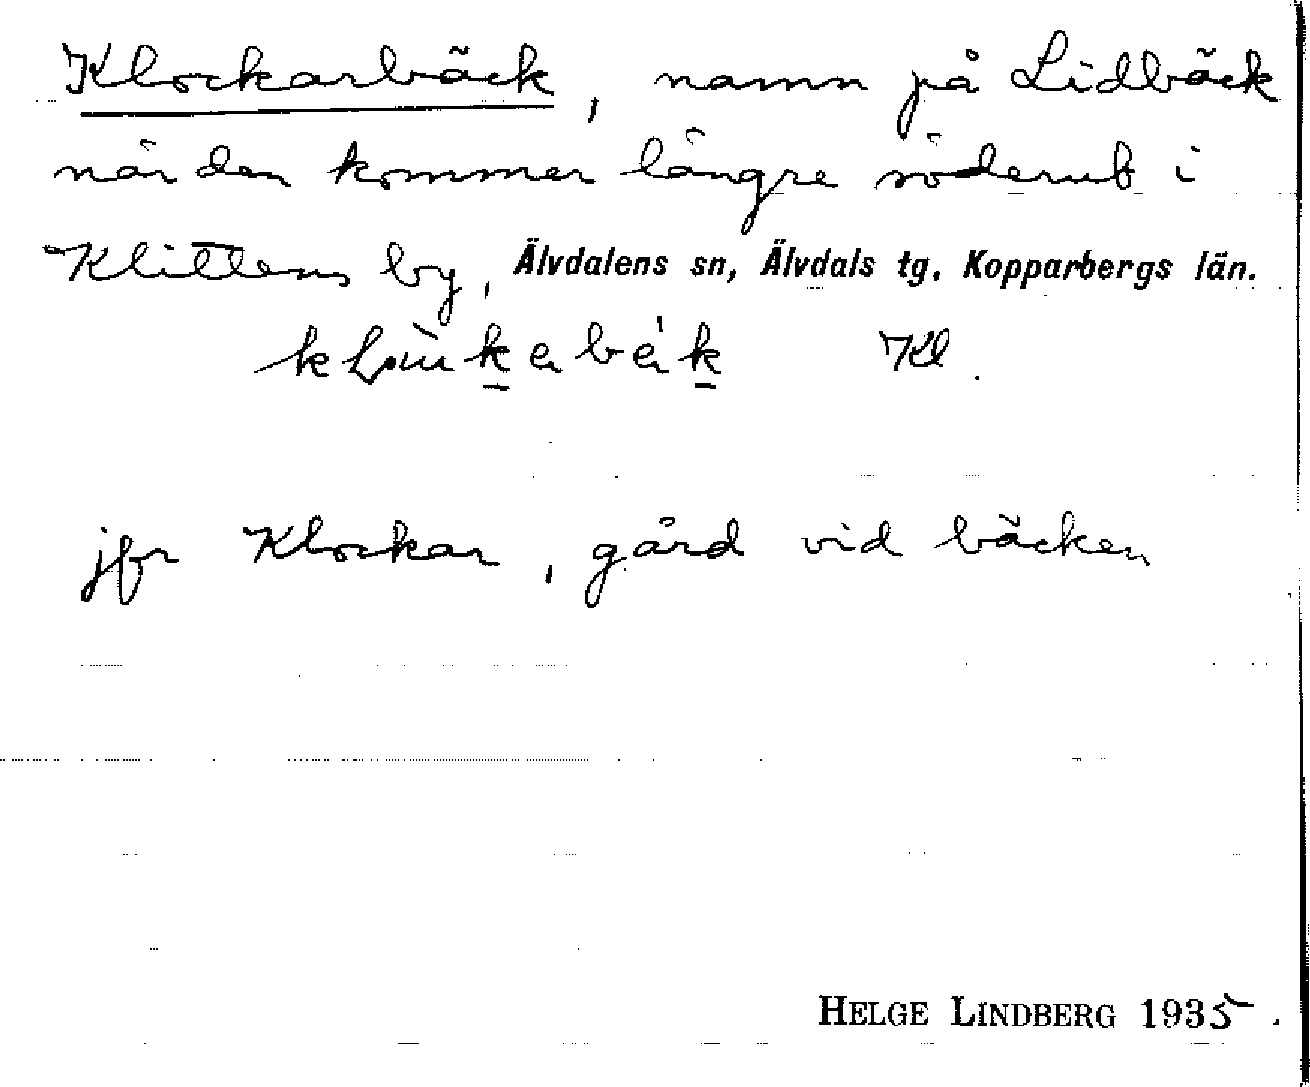 Klockarbäck, namn på Lidbäck
när den kommer längre söderut i
Klittens by, Älvdalens sn, Älvdals tg. Kopparbergs län.
Kl.
jfr Klockar, gård vid bäcken
HELGE LINDBERG 1935.